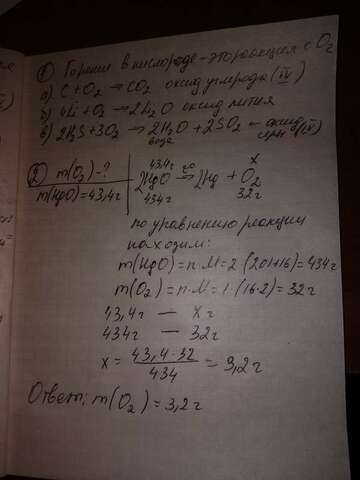 1) Горение в кислороде - это реакция с O₂
а) C + O₂ → CO₂ оксид углерода (IV)
б) 4Li + O₂ → 2Li₂O оксид лития
в) 2H₂S + 3O₂ → 2H₂O + 2SO₂ ← оксид
вода серы (IV)
2) m(O₂) - ?
m(HgO) = 43,4г
43,4г t° x
2HgO → 2Hg + O₂
434г 32г
по уравнению реакции
находим:
m(HgO) = n·M = 2·(201+16) = 434г
m(O₂) = n·M = 1·(16·2) = 32г
43,4г — x г
434г — 32г
x = 43,4·32 / 434 = 3,2г
Ответ: m(O₂) = 3,2г